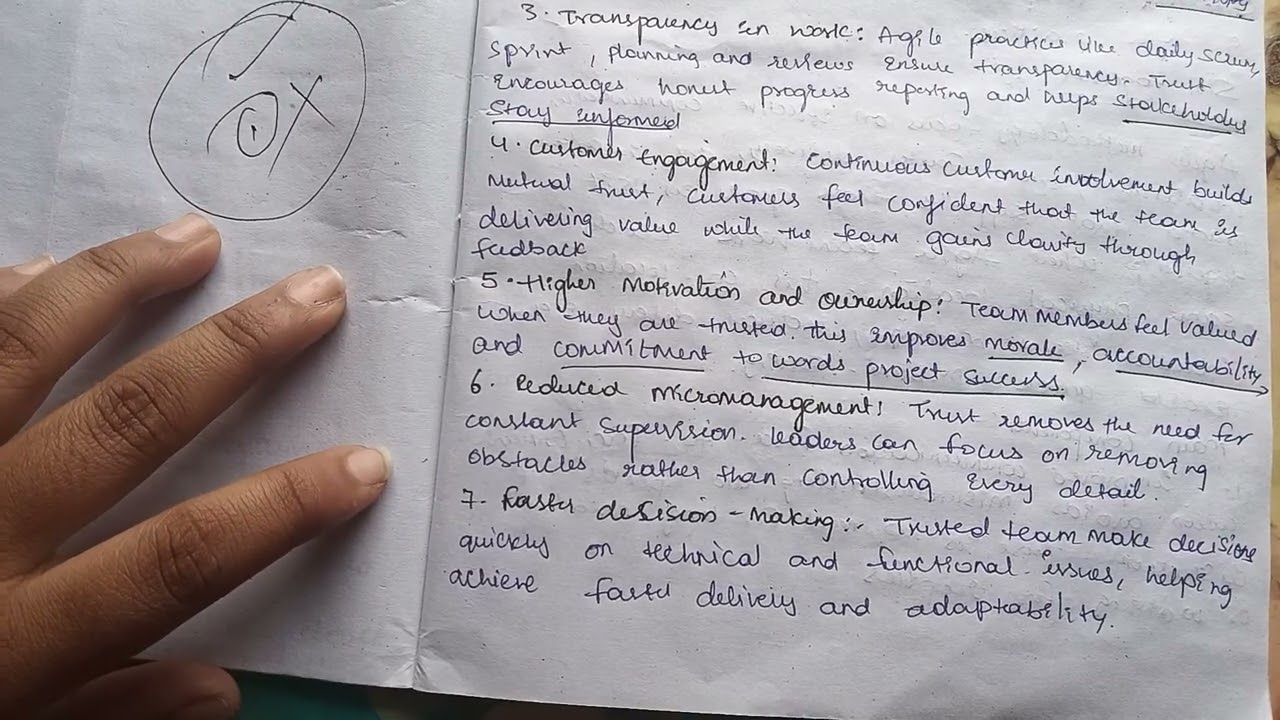 3. Transparency in work: Agile practices like daily scrum,
sprint, planning and reviews ensure transparency. Trust
encourages honest progress reporting and helps stakeholders
stay informed
4. Customer Engagement: Continuous customer involvement builds
mutual trust, customers feel confident that the team is
delivering value while the team gains clarity through
feedback
5. Higher Motivation and ownership: Team members feel valued
when they are trusted. this improves morale, accountability,
and commitment to words project success.
6. Reduced micromanagement: Trust removes the need for
constant supervision. leaders can focus on removing
obstacles rather than controlling every detail.
7. Faster desision-making:- Trusted team make decisions
quickly on technical and functional issues, helping
achieve faster delivery and adaptability.